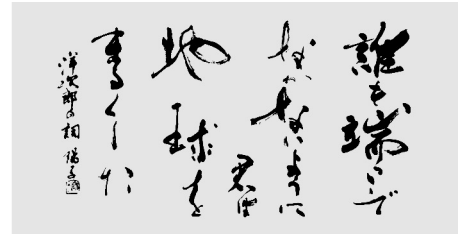 誰も端っこで
なかないように
君は
地球を
まるくした
洋次郎の詞